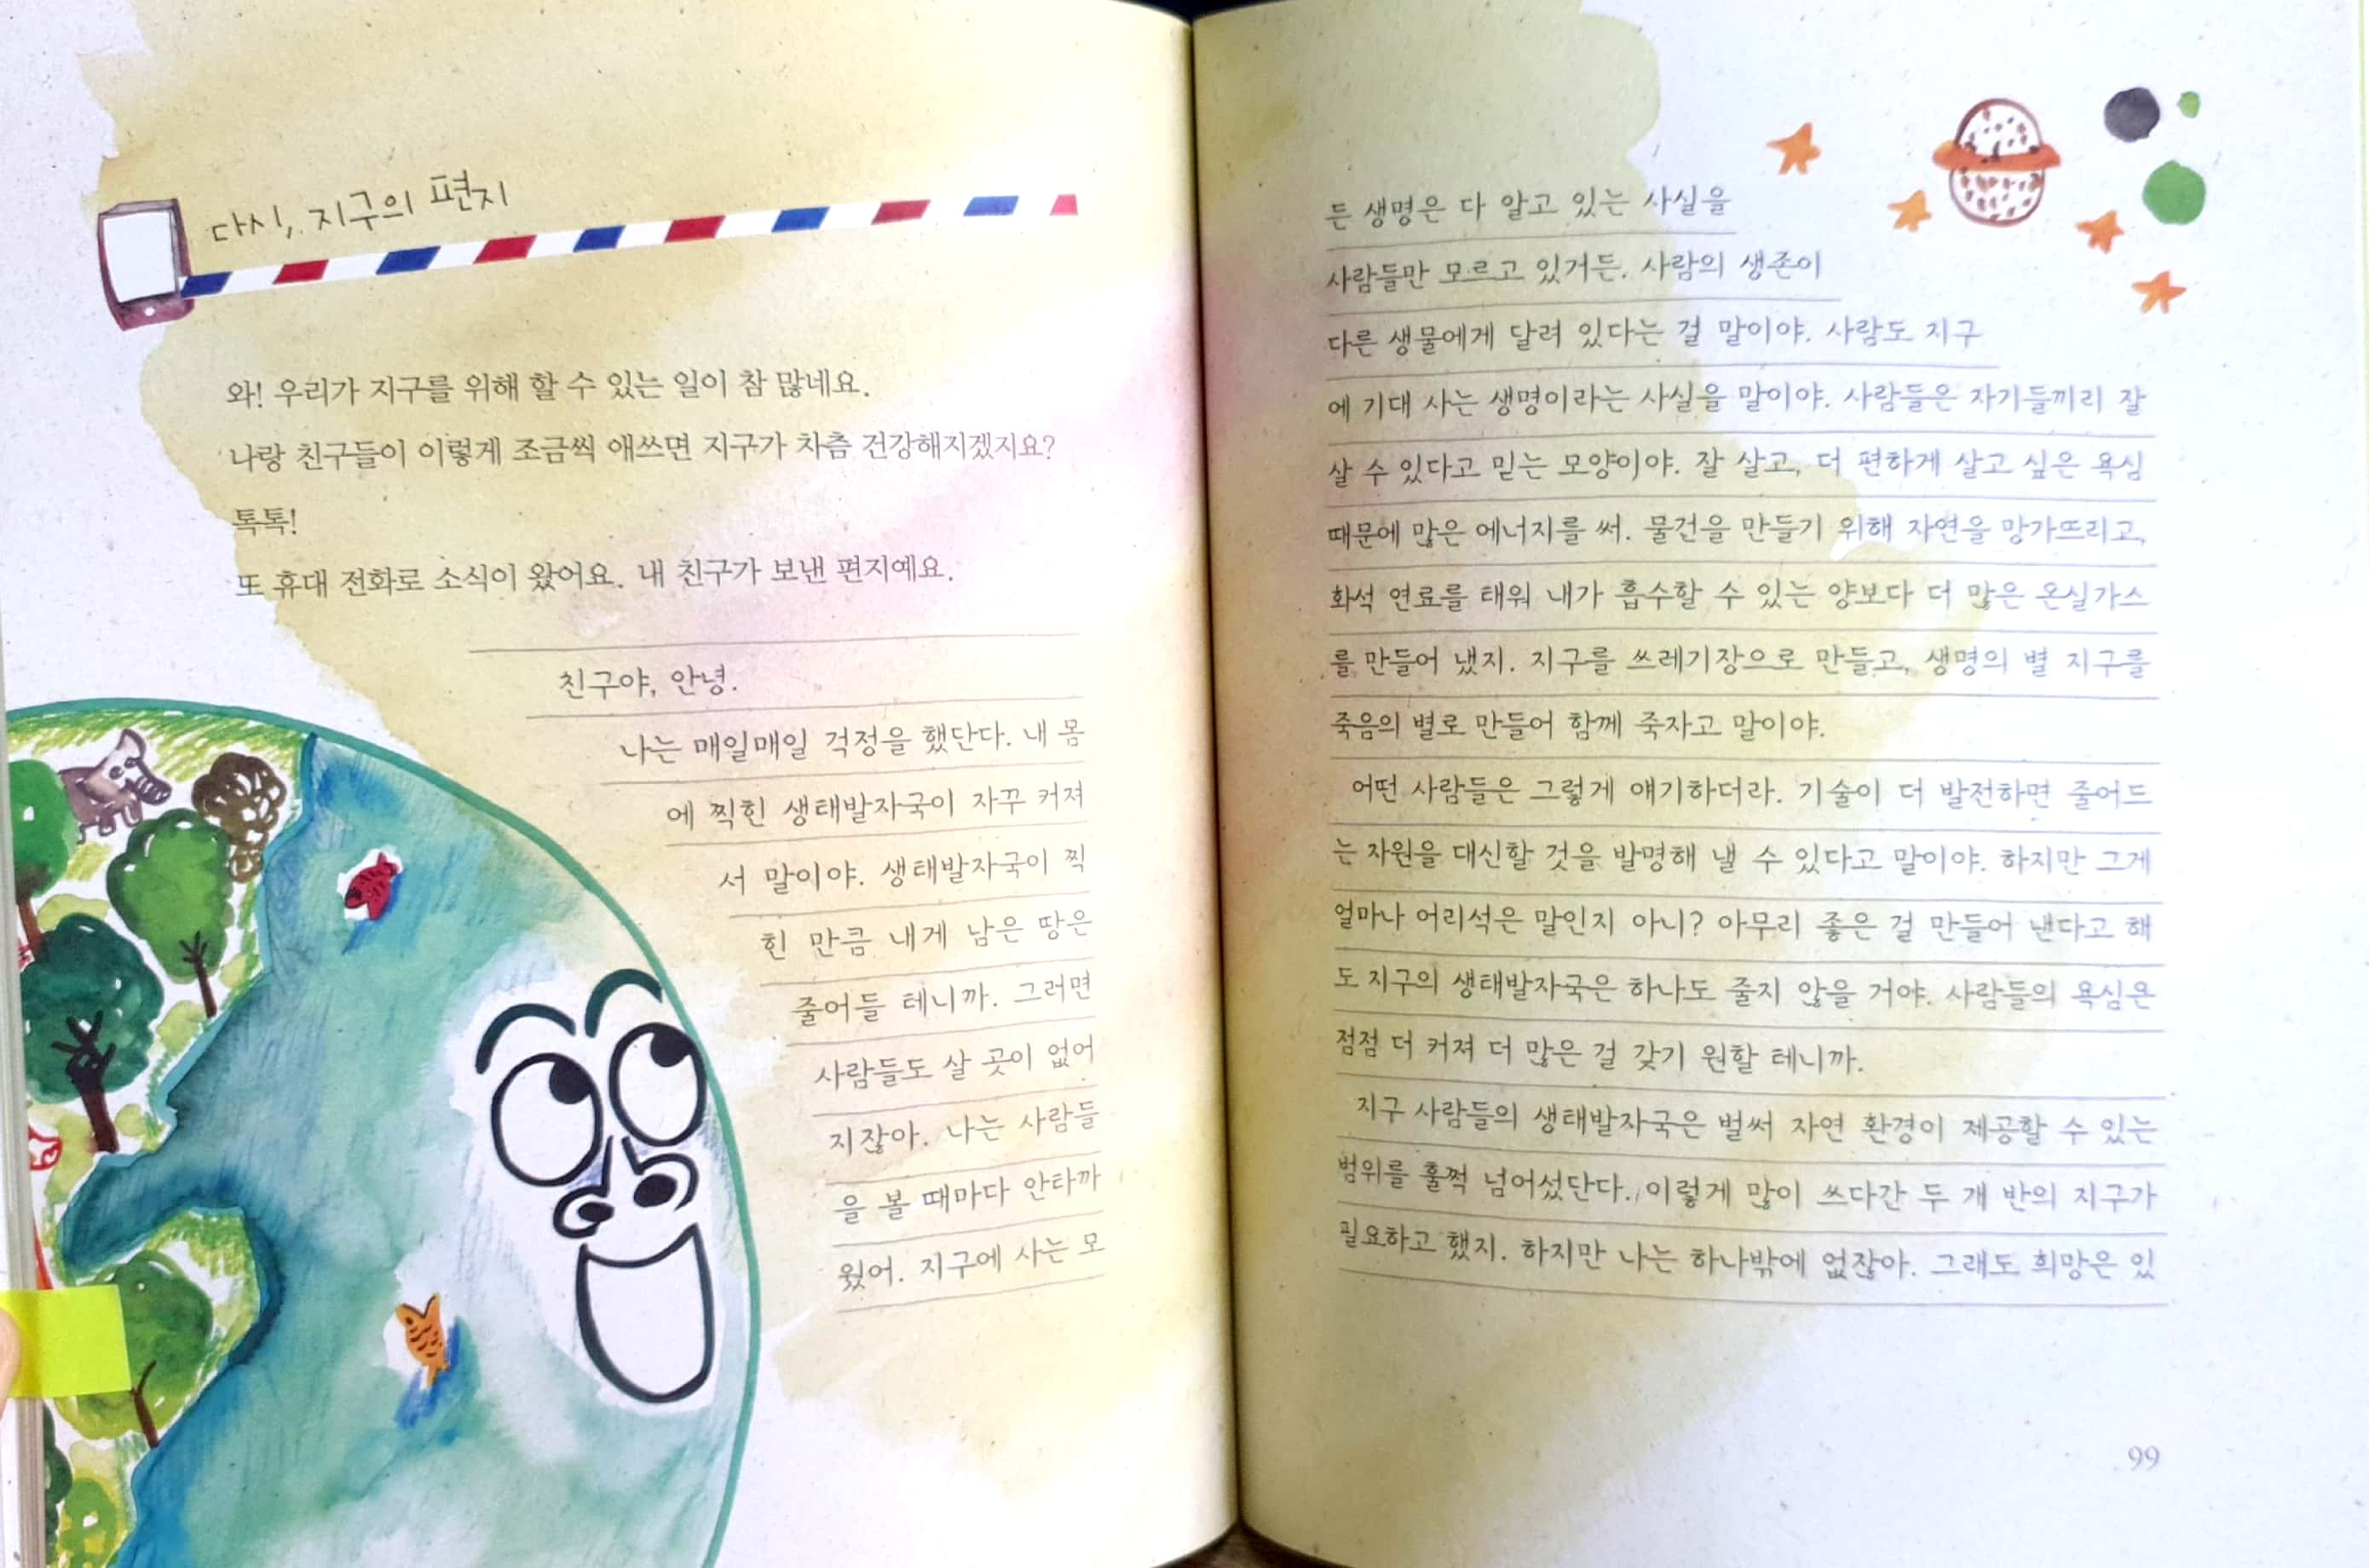 다시, 지구의 편지
와! 우리가 지구를 위해 할 수 있는 일이 참 많네요.
나랑 친구들이 이렇게 조금씩 애쓰면 지구가 차츰 건강해지겠지요?
톡톡!
또 휴대 전화로 소식이 왔어요. 내 친구가 보낸 편지예요.
친구야, 안녕.
나는 매일매일 걱정을 했단다. 내 몸
에 찍힌 생태발자국이 자꾸 커져
서 말이야. 생태발자국이 찍
힌 만큼 내게 남은 땅은
줄어들 테니까. 그러면
사람들도 살 곳이 없어
지잖아. 나는 사람들
을 볼 때마다 안타까
웠어. 지구에 사는 모
든 생명은 다 알고 있는 사실을
사람들만 모르고 있거든. 사람의 생존이
다른 생물에게 달려 있다는 걸 말이야. 사람도 지구
에 기대 사는 생명이라는 사실을 말이야. 사람들은 자기들끼리 잘
살 수 있다고 믿는 모양이야. 잘 살고, 더 편하게 살고 싶은 욕심
때문에 많은 에너지를 써. 물건을 만들기 위해 자연을 망가뜨리고,
화석 연료를 태워 내가 흡수할 수 있는 양보다 더 많은 온실가스
를 만들어 냈지. 지구를 쓰레기장으로 만들고, 생명의 별 지구를
죽음의 별로 만들어 함께 죽자고 말이야.
어떤 사람들은 그렇게 얘기하더라. 기술이 더 발전하면 줄어드
는 자원을 대신할 것을 발명해 낼 수 있다고 말이야. 하지만 그게
얼마나 어리석은 말인지 아니? 아무리 좋은 걸 만들어 낸다고 해
도 지구의 생태발자국은 하나도 줄지 않을 거야. 사람들의 욕심은
점점 더 커져 더 많은 걸 갖기 원할 테니까.
지구 사람들의 생태발자국은 벌써 자연 환경이 제공할 수 있는
범위를 훌쩍 넘어섰단다. 이렇게 많이 쓰다간 두 개 반의 지구가
필요하고 했지. 하지만 나는 하나밖에 없잖아. 그래도 희망은 있
99